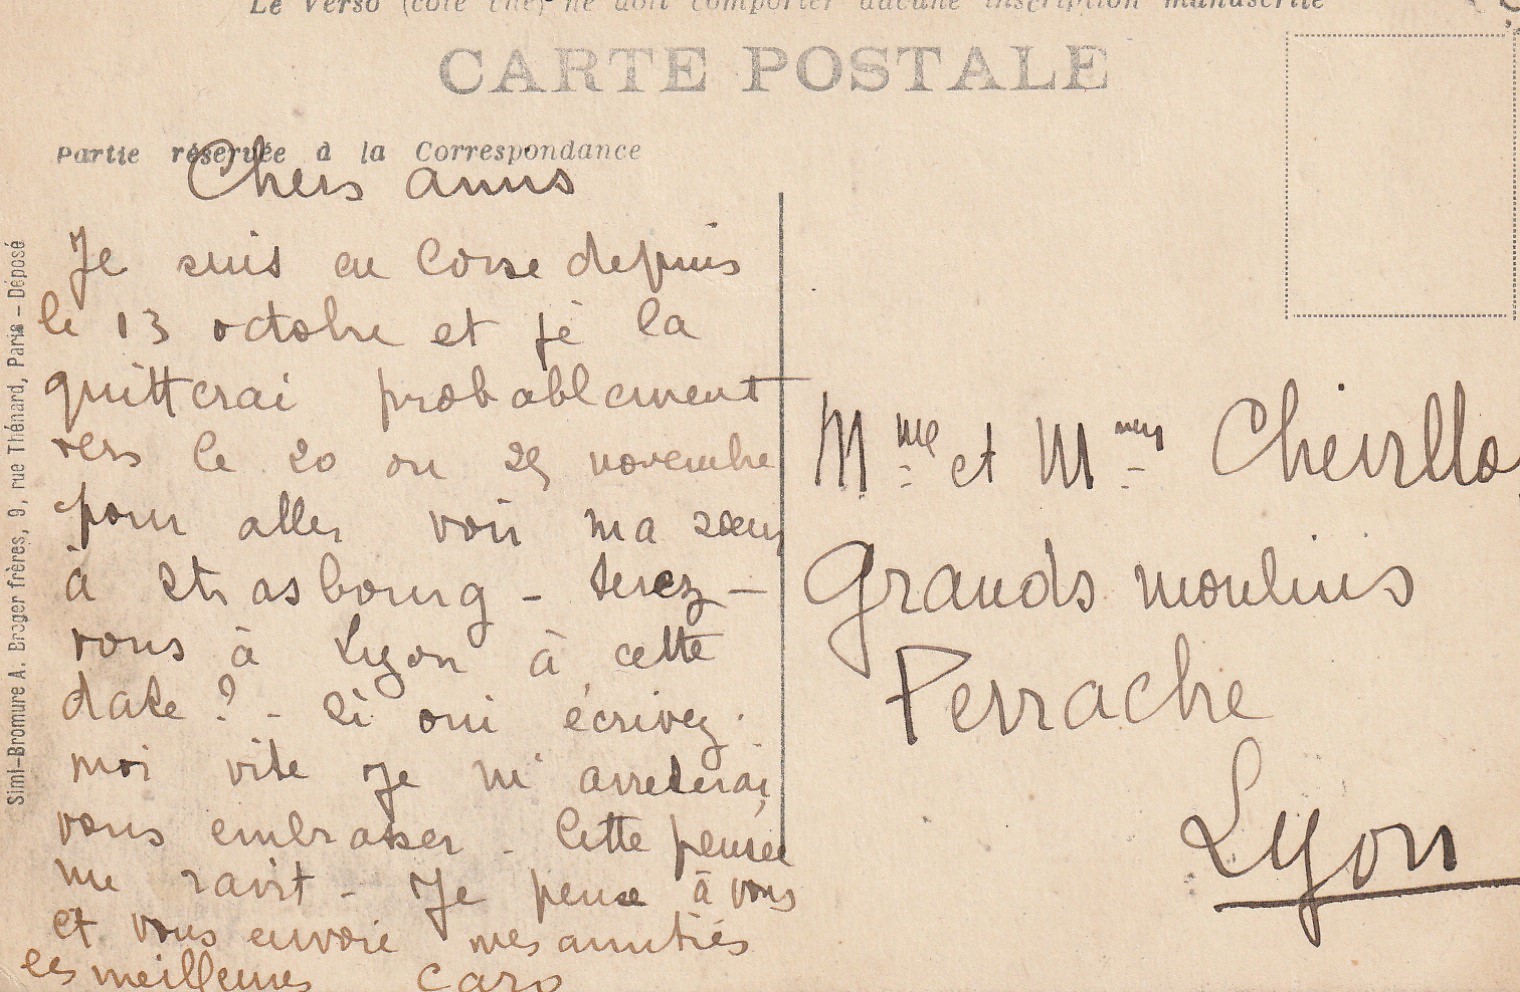 Le Verso (côté cité) ne doit comporter aucune inscription manuscrite
CARTE POSTALE
Partie réservée à la Correspondance
Chers amis
Je suis en Corse depuis
le 13 octobre et je la
quitterai probablement
vers le 20 ou 25 novembre
pour aller voir ma sœur
à Strasbourg - Serez-
vous à Lyon à cette
date ? - Si oui écrivez-
moi vite je m'arreterai
vous embrasser - Cette pensée
me ravit - Je pense à vous
et vous envoie mes amitiés
les meilleures Caro
Mme et Mr
Grands moulins
Perrache
Lyon
Simi-Bromure A. Breger frères, 9, rue Thénard, Paris - Déposé